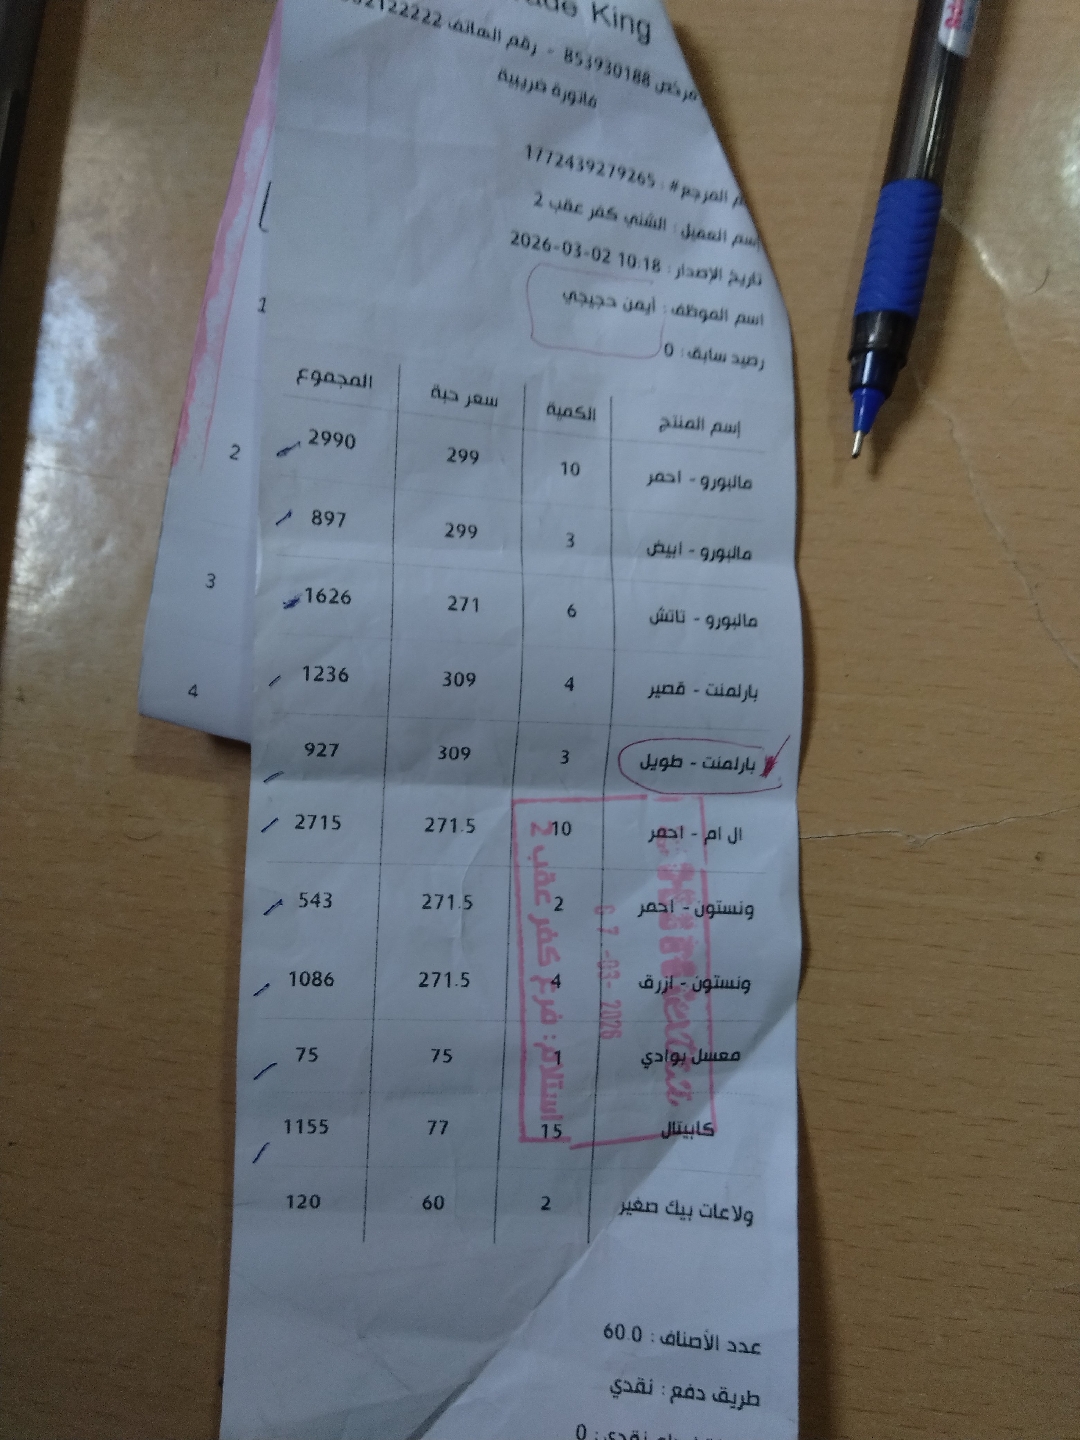 King
مرخص 853930188 - رقم الهاتف
فاتورة ضريبية
المرجع# : 1772439279265
اسم العميل : الشني كفر عقب 2
تاريخ الإصدار : 2026-03-02 10:18
اسم الموظف : أيمن حجيجي
رصيد سابق : 0
إسم المنتج الكمية سعر حبة المجموع
مالبورو - احمر 10 299 2990
مالبورو - ابيض 3 299 897
مالبورو - تاتش 6 271 1626
بارلمنت - قصير 4 309 1236
بارلمنت - طويل 3 309 927
ال ام - احمر 10 271.5 2715
ونستون - احمر 2 271.5 543
ونستون - ازرق 4 271.5 1086
معسل بوادي 1 75 75
كابيتال 15 77 1155
ولاعات بيك صغير 2 60 120
عدد الأصناف : 60.0
طريق دفع : نقدي
نقدي : 0
استلام : فرع كفر عقب 2
-03- 2026
1
2
3
4